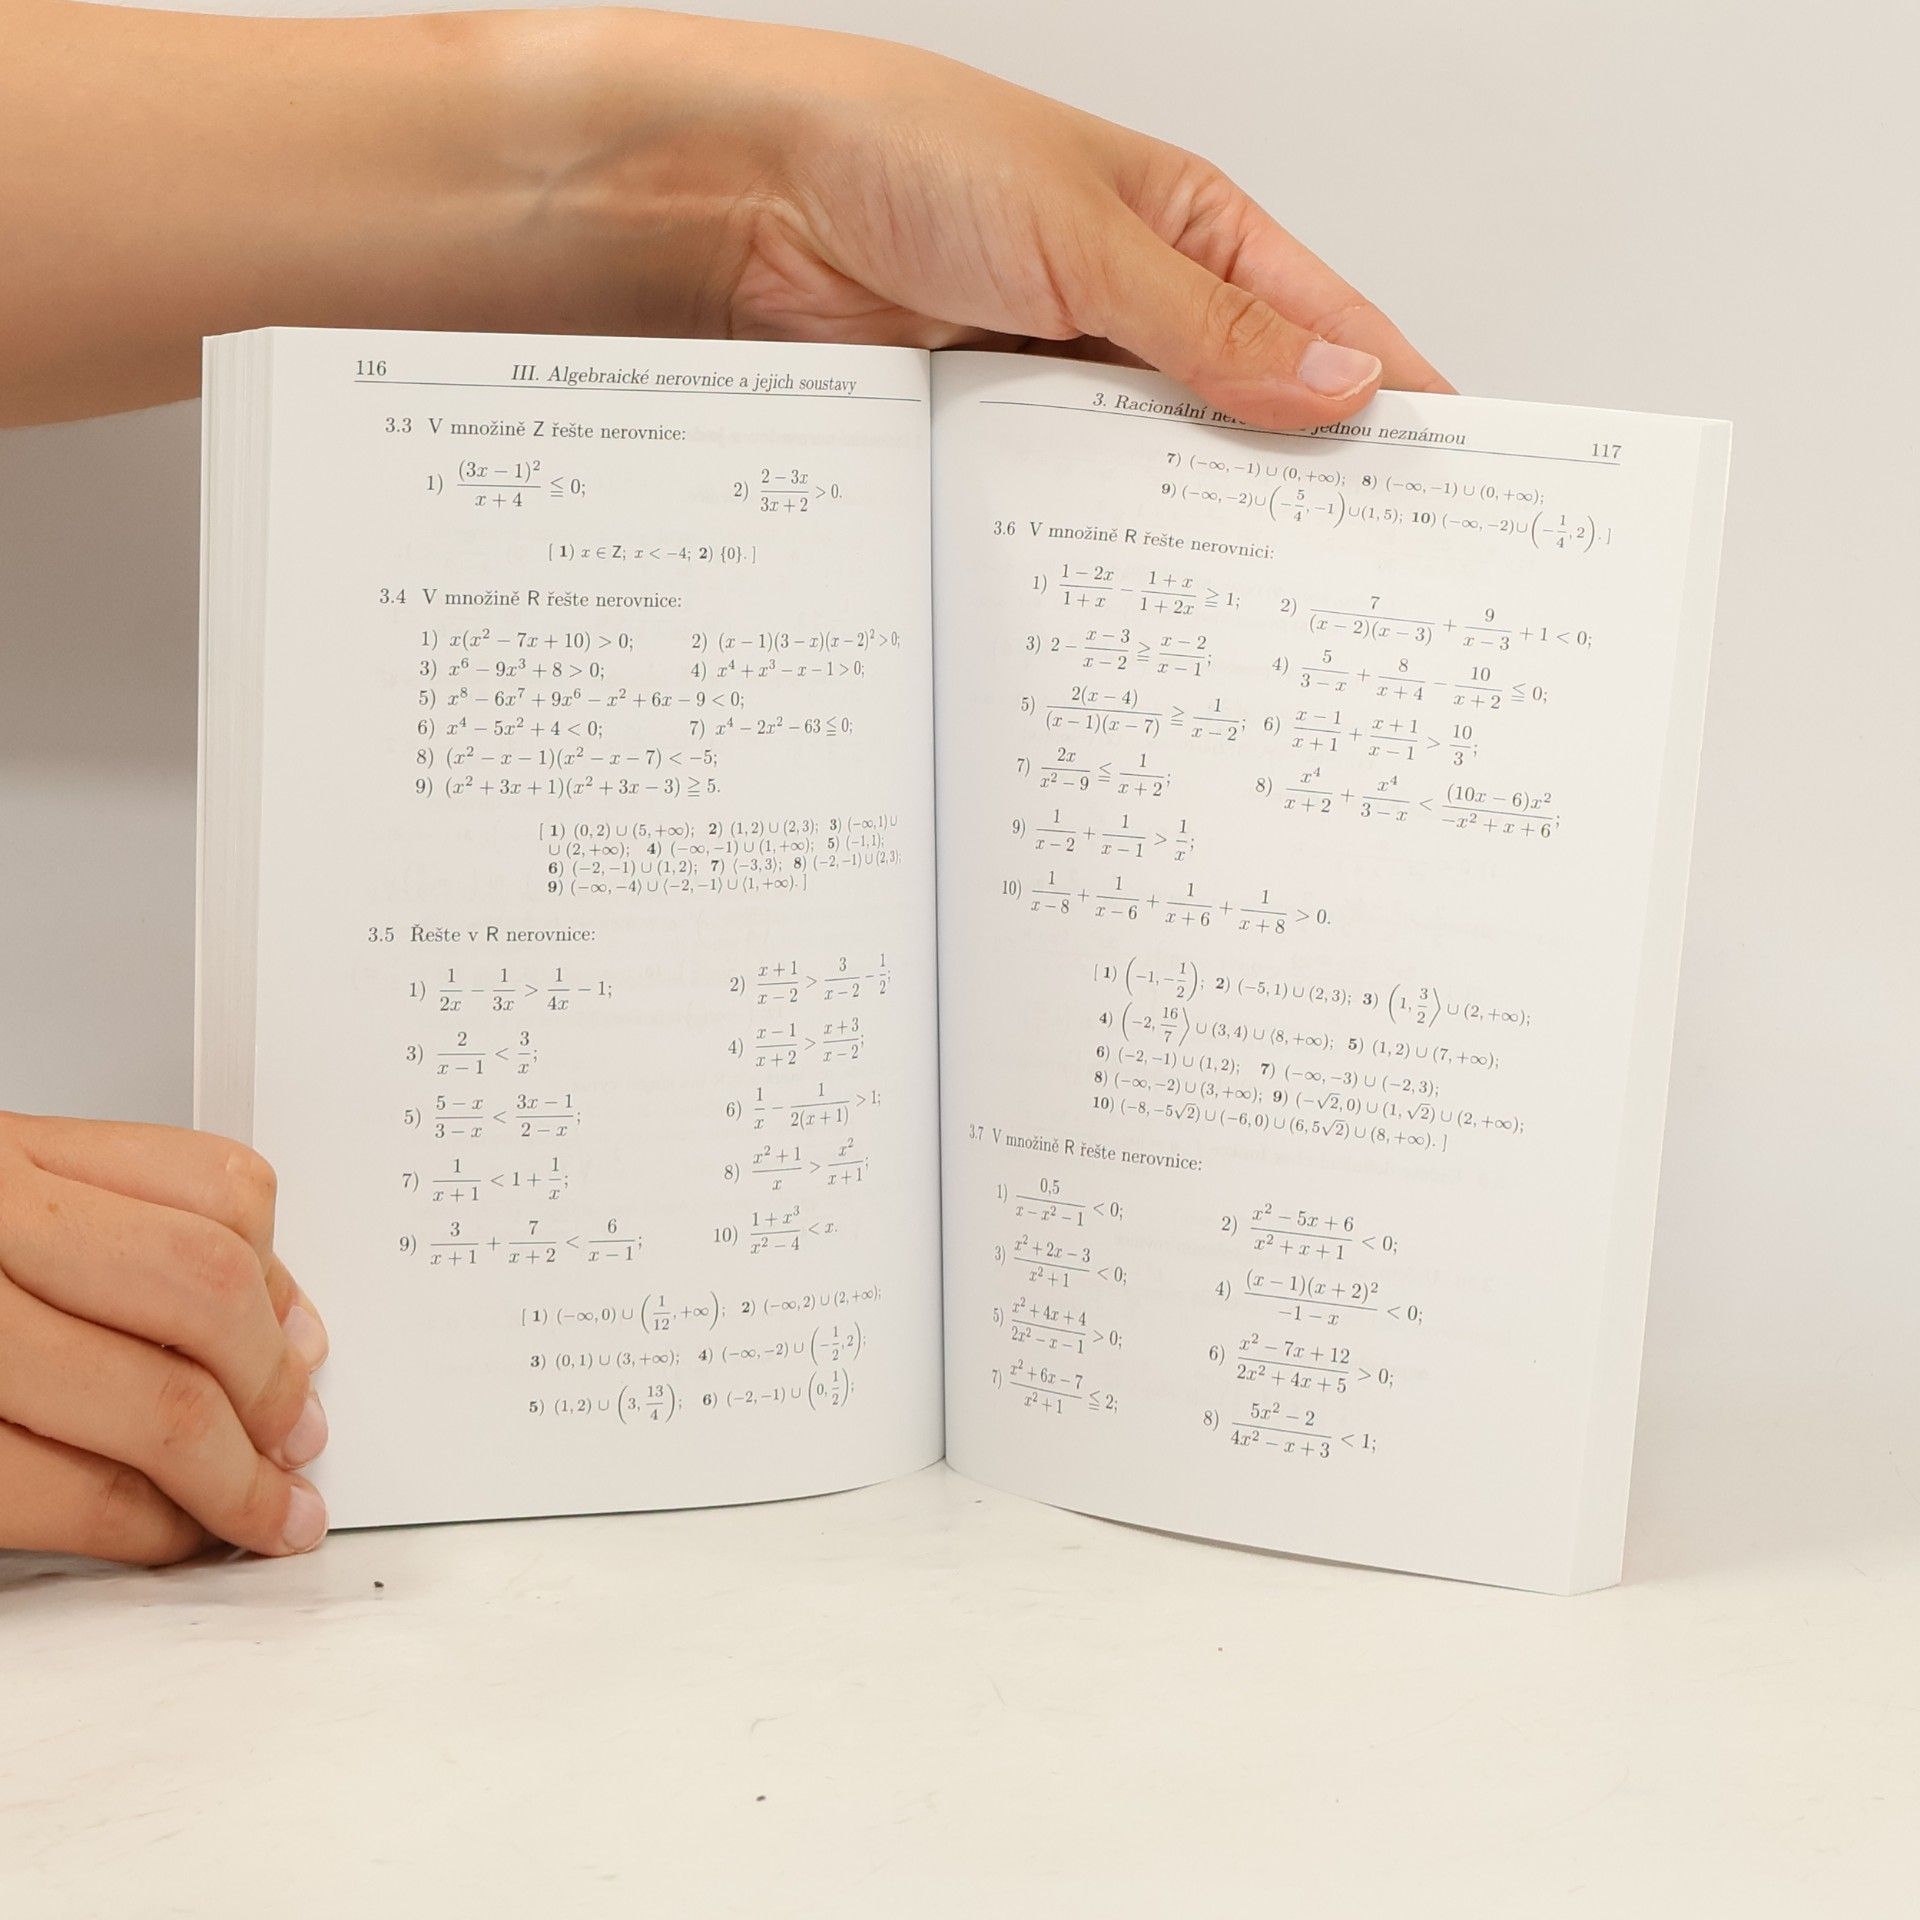 116 III. Algebraické nerovnice a jejich soustavy
3.3 V množině Z řešte nerovnice:
1) (3x − 1)²/(x + 4) ≦ 0; 2) (2 − 3x)/(3x + 2) > 0.
[ 1) x ∈ Z; x < −4; 2) {0}. ]
3.4 V množině R řešte nerovnice:
1) x(x² − 7x + 10) > 0; 2) (x − 1)(3 − x)(x − 2)² > 0;
3) x⁶ − 9x³ + 8 > 0; 4) x⁴ + x³ − x − 1 > 0;
5) x⁸ − 6x⁷ + 9x⁶ − x² + 6x − 9 < 0;
6) x⁴ − 5x² + 4 < 0; 7) x⁴ − 2x² − 63 ≦ 0;
8) (x² − x − 1)(x² − x − 7) < −5;
9) (x² + 3x + 1)(x² + 3x − 3) ≧ 5.
[ 1) (0, 2) ∪ (5, +∞); 2) (1, 2) ∪ (2, 3); 3) (−∞, 1) ∪
∪ (2, +∞); 4) (−∞, −1) ∪ (1, +∞); 5) (−1, 1);
6) (−2, −1) ∪ (1, 2); 7) ⟨−3, 3⟩; 8) (−2, −1) ∪ (2, 3);
9) (−∞, −4⟩ ∪ ⟨−2, −1⟩ ∪ ⟨1, +∞). ]
3.5 Řešte v R nerovnice:
1) 1/(2x) − 1/(3x) > 1/(4x) − 1; 2) (x + 1)/(x − 2) > 3/(x − 2) − 1/2;
3) 2/(x − 1) < 3/x; 4) (x − 1)/(x + 2) > (x + 3)/(x − 2);
5) (5 − x)/(3 − x) < (3x − 1)/(2 − x); 6) 1/x − 1/(2(x + 1)) > 1;
7) 1/(x + 1) < 1 + 1/x; 8) (x² + 1)/x > x²/(x + 1);
9) 3/(x + 1) + 7/(x + 2) < 6/(x − 1); 10) (1 + x³)/(x² − 4) < x.
[ 1) (−∞, 0) ∪ (1/12, +∞); 2) (−∞, 2) ∪ (2, +∞);
3) (0, 1) ∪ (3, +∞); 4) (−∞, −2) ∪ (−1/2, 2);
5) (1, 2) ∪ (3, 13/4); 6) (−2, −1) ∪ (0, 1/2);
3. Racionální jednou neznámou 117
7) (−∞, −1) ∪ (0, +∞); 8) (−∞, −1) ∪ (0, +∞);
9) (−∞, −2) ∪ (−5/4, −1) ∪ (1, 5); 10) (−∞, −2) ∪ (−1/4, 2). ]
3.6 V množině R řešte nerovnici:
1) (1 − 2x)/(1 + x) − (1 + x)/(1 + 2x) ≧ 1; 2) 7/((x − 2)(x − 3)) + 9/(x − 3) + 1 < 0;
3) 2 − (x − 3)/(x − 2) ≧ (x − 2)/(x − 1); 4) 5/(3 − x) + 8/(x + 4) − 10/(x + 2) ≦ 0;
5) 2(x − 4)/((x − 1)(x − 7)) ≧ 1/(x − 2); 6) (x − 1)/(x + 1) + (x + 1)/(x − 1) > 10/3;
7) 2x/(x² − 9) ≦ 1/(x + 2); 8) x⁴/(x + 2) + x⁴/(3 − x) < (10x − 6)x²/(−x² + x + 6);
9) 1/(x − 2) + 1/(x − 1) > 1/x;
10) 1/(x − 8) + 1/(x − 6) + 1/(x + 6) + 1/(x + 8) > 0.
[ 1) (−1, −1/2); 2) (−5, 1) ∪ (2, 3); 3) (1, 3/2⟩ ∪ (2, +∞);
4) (−2, 16/7⟩ ∪ (3, 4) ∪ ⟨8, +∞); 5) (1, 2) ∪ (7, +∞);
6) (−2, −1) ∪ (1, 2); 7) (−∞, −3) ∪ (−2, 3);
8) (−∞, −2) ∪ (3, +∞); 9) (−√2, 0) ∪ (1, √2) ∪ (2, +∞);
10) (−8, −5√2) ∪ (−6, 0) ∪ (6, 5√2) ∪ (8, +∞). ]
3.7 V množině R řešte nerovnice:
1) 0,5/(x − x² − 1) < 0; 2) (x² − 5x + 6)/(x² + x + 1) < 0;
3) (x² + 2x − 3)/(x² + 1) < 0; 4) (x − 1)(x + 2)²/(−1 − x) < 0;
5) (x² + 4x + 4)/(2x² − x − 1) > 0; 6) (x² − 7x + 12)/(2x² + 4x + 5) > 0;
7) (x² + 6x − 7)/(x² + 1) ≦ 2; 8) (5x² − 2)/(4x² − x + 3) < 1;